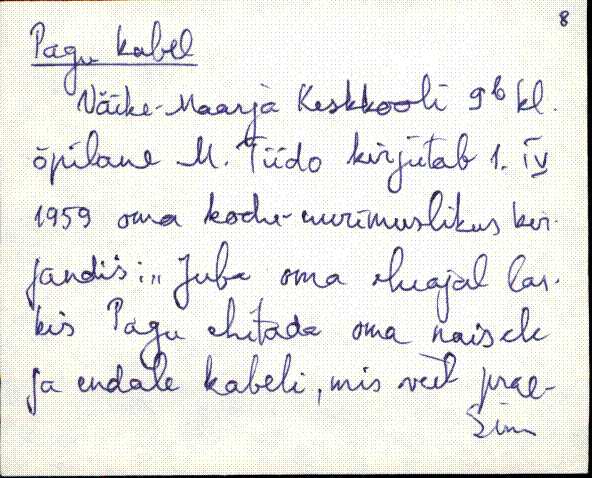 8
Pagu kabel
Väike-Maarja Keskkooli 9b kl.
õpilane M. Tiido kirjutab 1. IV
1959 oma kodu-uurimuslikus kir-
jandis: „Juba oma eluajal las-
kis Pagu ehitada oma naisele
ja endale kabeli, mis veel prae-
gune